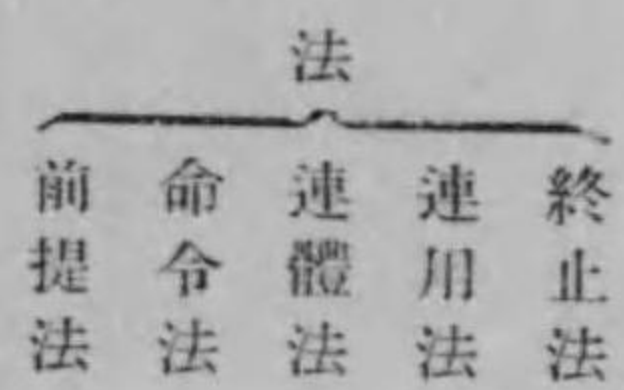 法
終止法
連用法
連體法
命令法
前提法